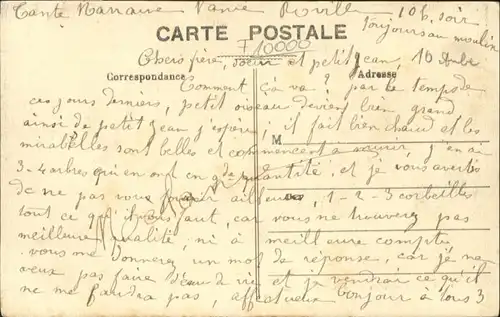 Tante Nanaue 10h, soir
toujours au moulin
CARTE POSTALE
710000
Chers frère, soeur et petit jean, 10
Correspondance Adresse
Comment ça va ? par le temps de
ces jours derniers, petit oiseau devient bien grand
ainsi de petit jean j'espère ; il fait bien chaud et les
M
mirabelles sont belles et commencent à mûrir, j'en ai
3-4 arbres qui en ont en gde quantité, et je vous avertis
de ne pas vous ailleurs, 1-2-3 corbeilles
tout ce qu'il vous faut, car vous ne trouverez pas
meilleure qualité, ni à meilleure compte
vous me donnerez un mot de réponse, car je ne
veux pas faire d'eau de vie et je vendrai ce qu'il
ne me faudra pas, affectueux bonjour à tous 3